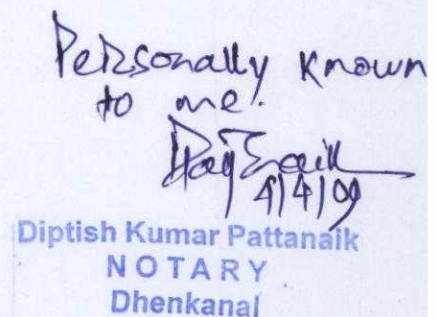 Personally known
to me.
4/4/09
Diptish Kumar Pattanaik
NOTARY
Dhenkanal